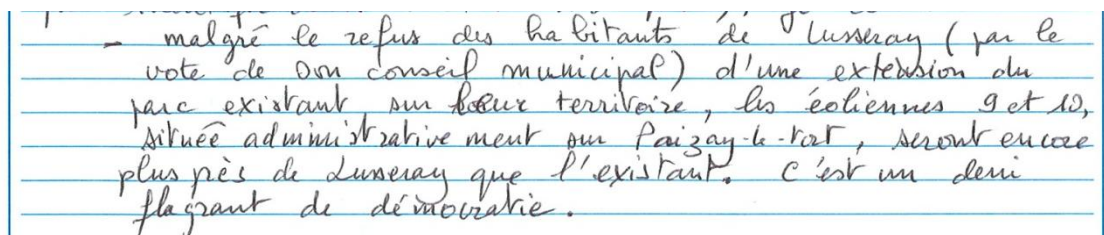 - malgré le refus des habitants de Lusseray (par le
vote de son conseil municipal) d'une extension du
parc existant sur leur territoire, les éoliennes 9 et 10,
située administrativement sur Paizay-le-tort, seront encore
plus près de Lusseray que l'existant. C'est un deni
flagrant de démocratie.